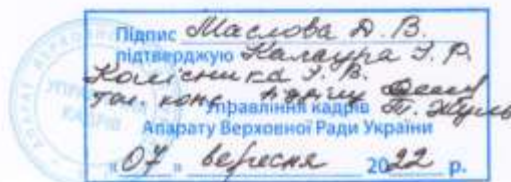 Підпис Маслова Д. В.
підтверджую Калаура І. Р.
Колісника І. В.
гол. конс. відділу
Управління кадрів
Апарату Верховної Ради України
"07" вересня 2022 р.
УПРАВЛІННЯ
КАДРІВ